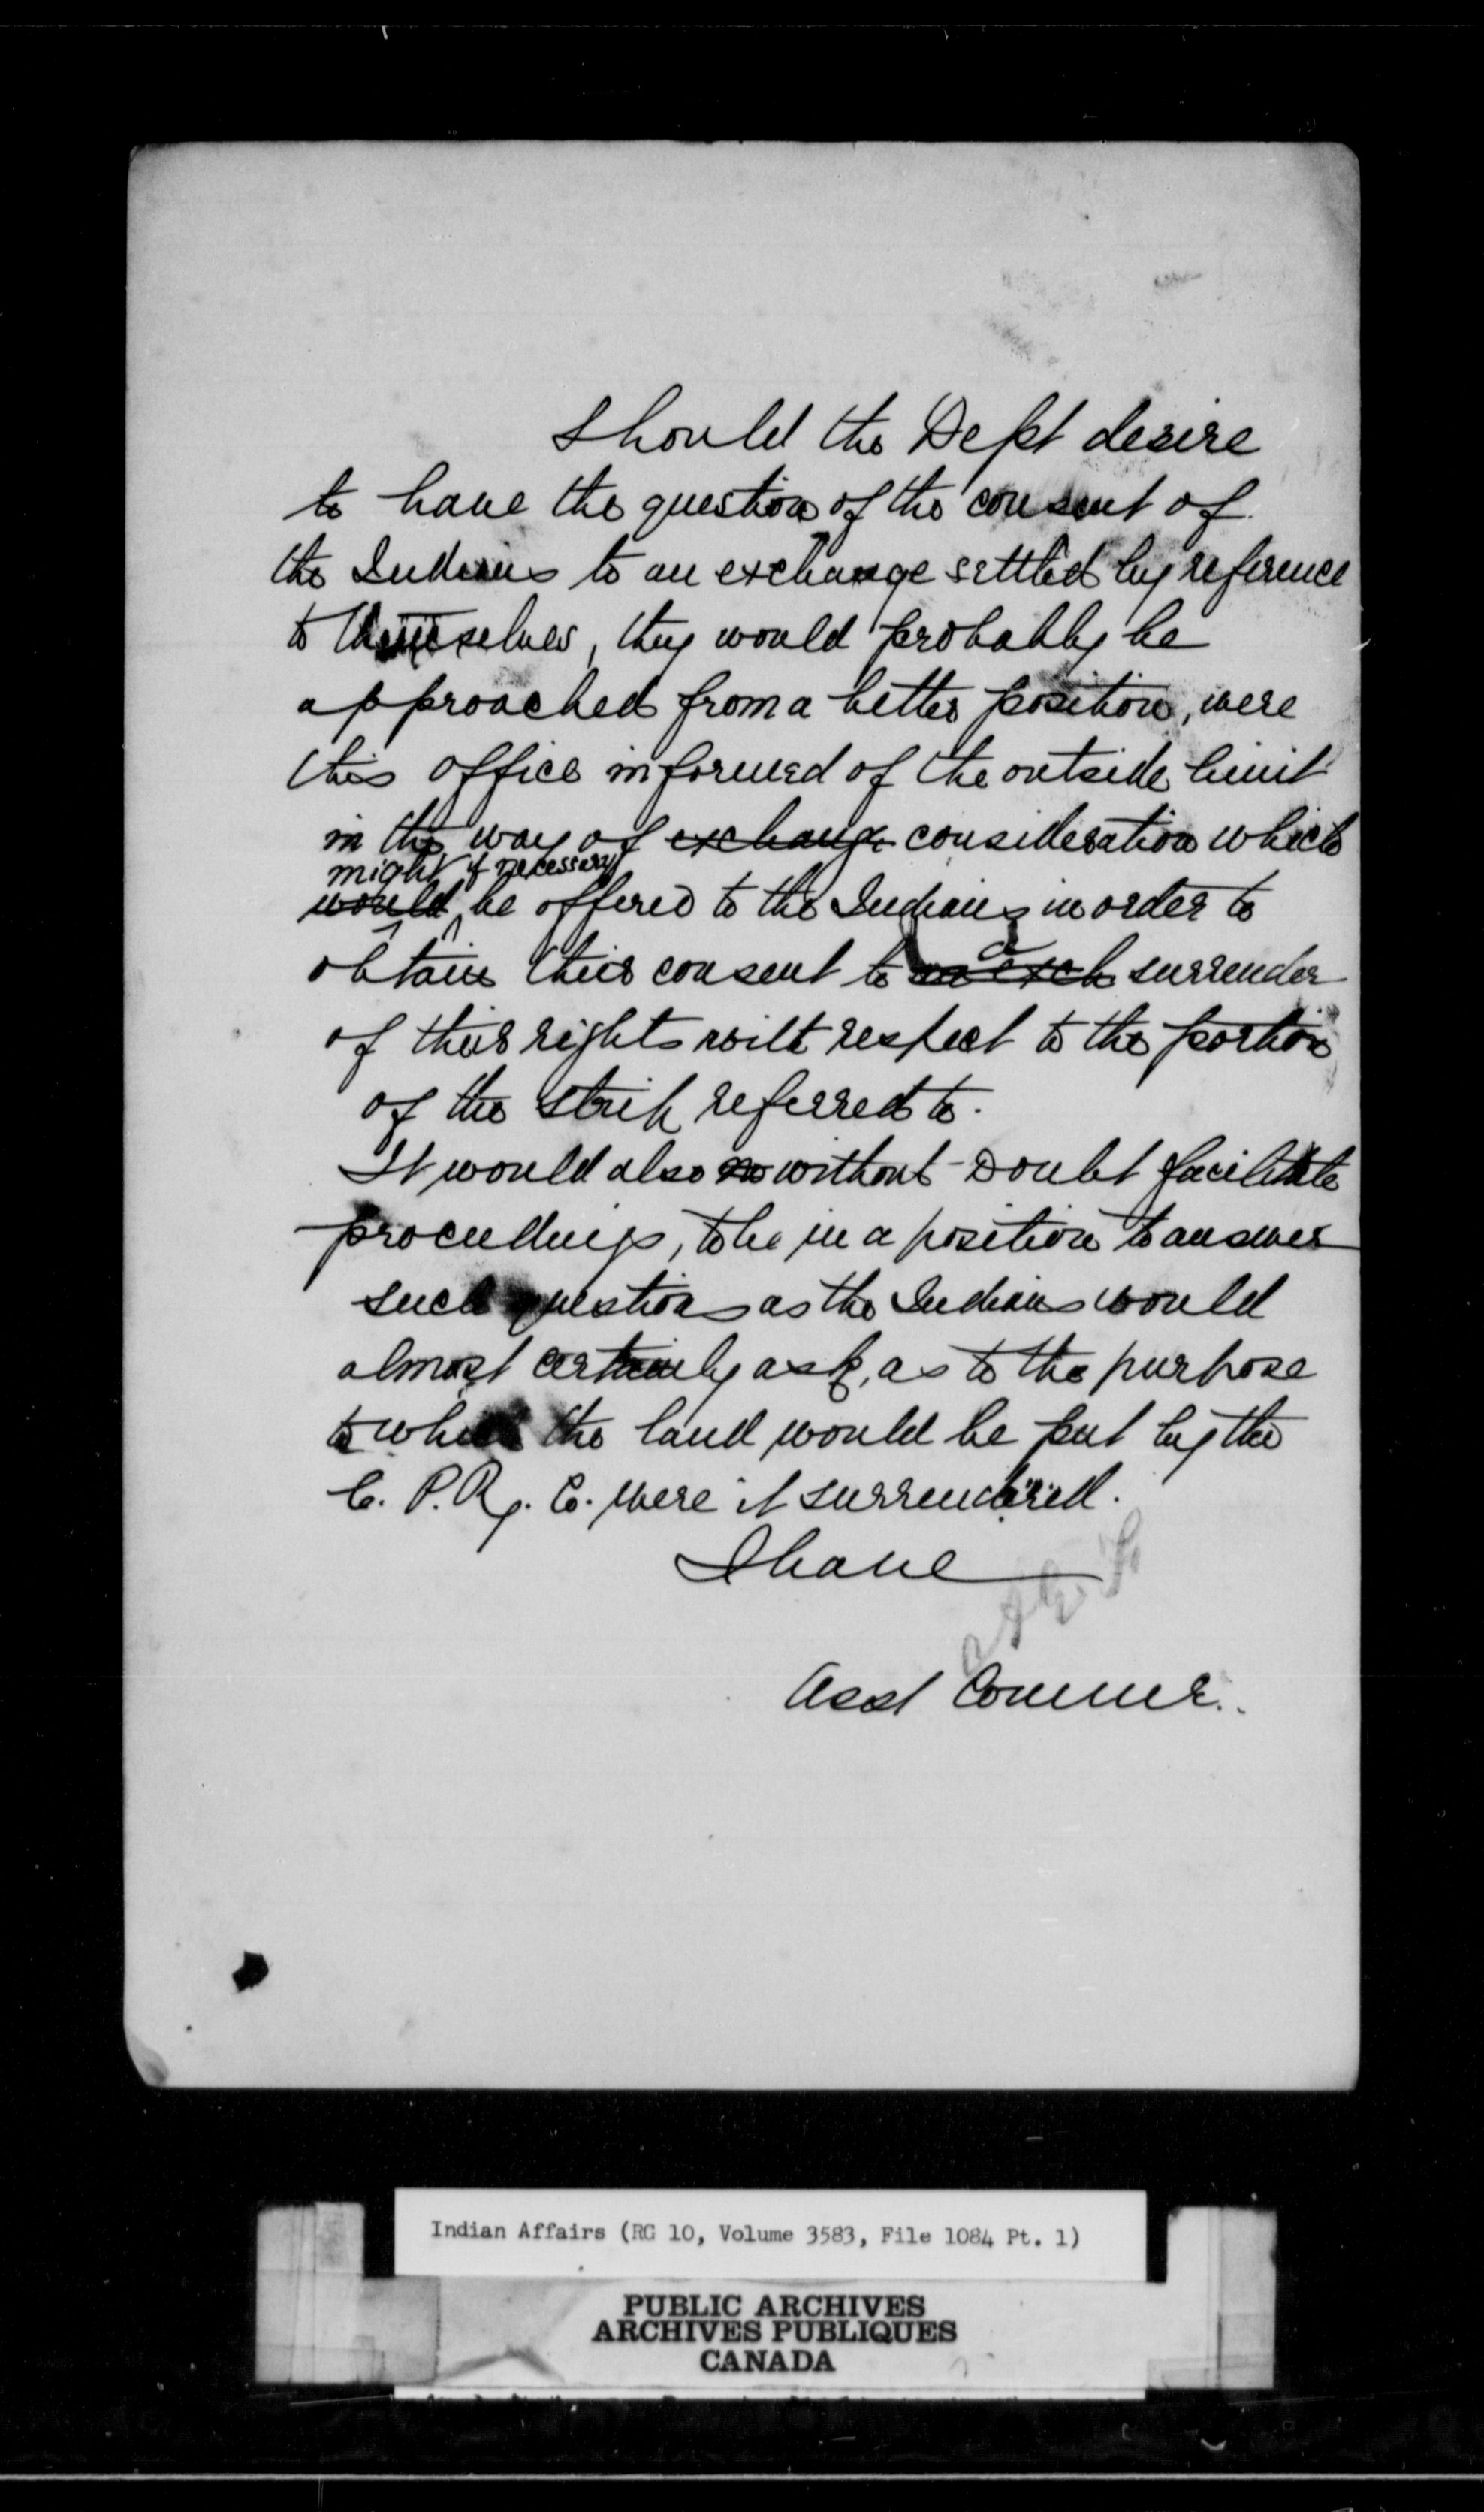 Should the Dept desire
to have the question of the consent of
the Indians to an exchange settled by reference
to themselves, they would probably be
approached from a better position, were
this office informed of the outside limit
in the way of exchange consideration which
might if necessary
would be offered to the Indians in order to
obtain their consent to an exch a surrender
of their rights with respect to the portion
of the strip referred to.
It would also no without doubt facilitate
proceedings, to be in a position to answer
such questions as the Indians would
almost certainly ask, as to the purpose
to which the land would be put by the
C. P. Ry. Co. were it surrendered.
I have
Asst Commr.
Indian Affairs (RG 10, Volume 3583, File 1084 Pt. 1)
PUBLIC ARCHIVES
ARCHIVES PUBLIQUES
CANADA